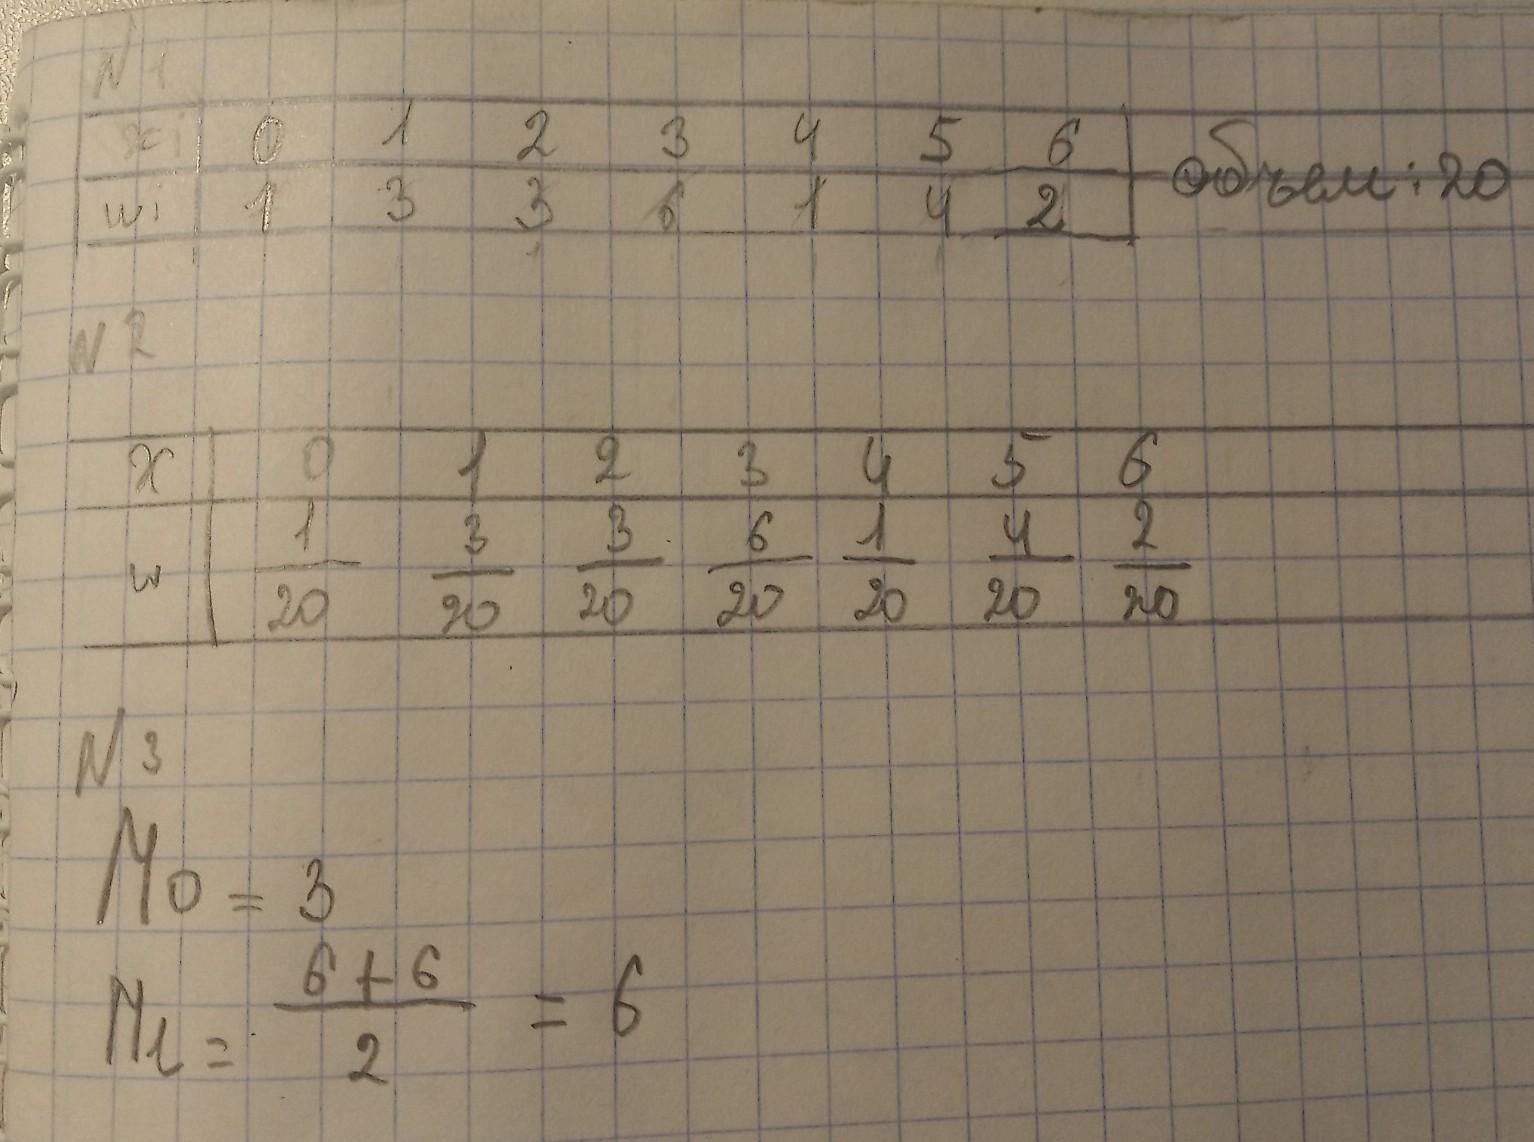 N 1
xi 0 1 2 3 4 5 6 Объем: 20
wi 1 3 3 6 1 4 2
N 2
x 0 1 2 3 4 5 6
w 1/20 3/20 3/20 6/20 1/20 4/20 2/20
N 3
Mo = 3
Me = (6 + 6)/2 = 6